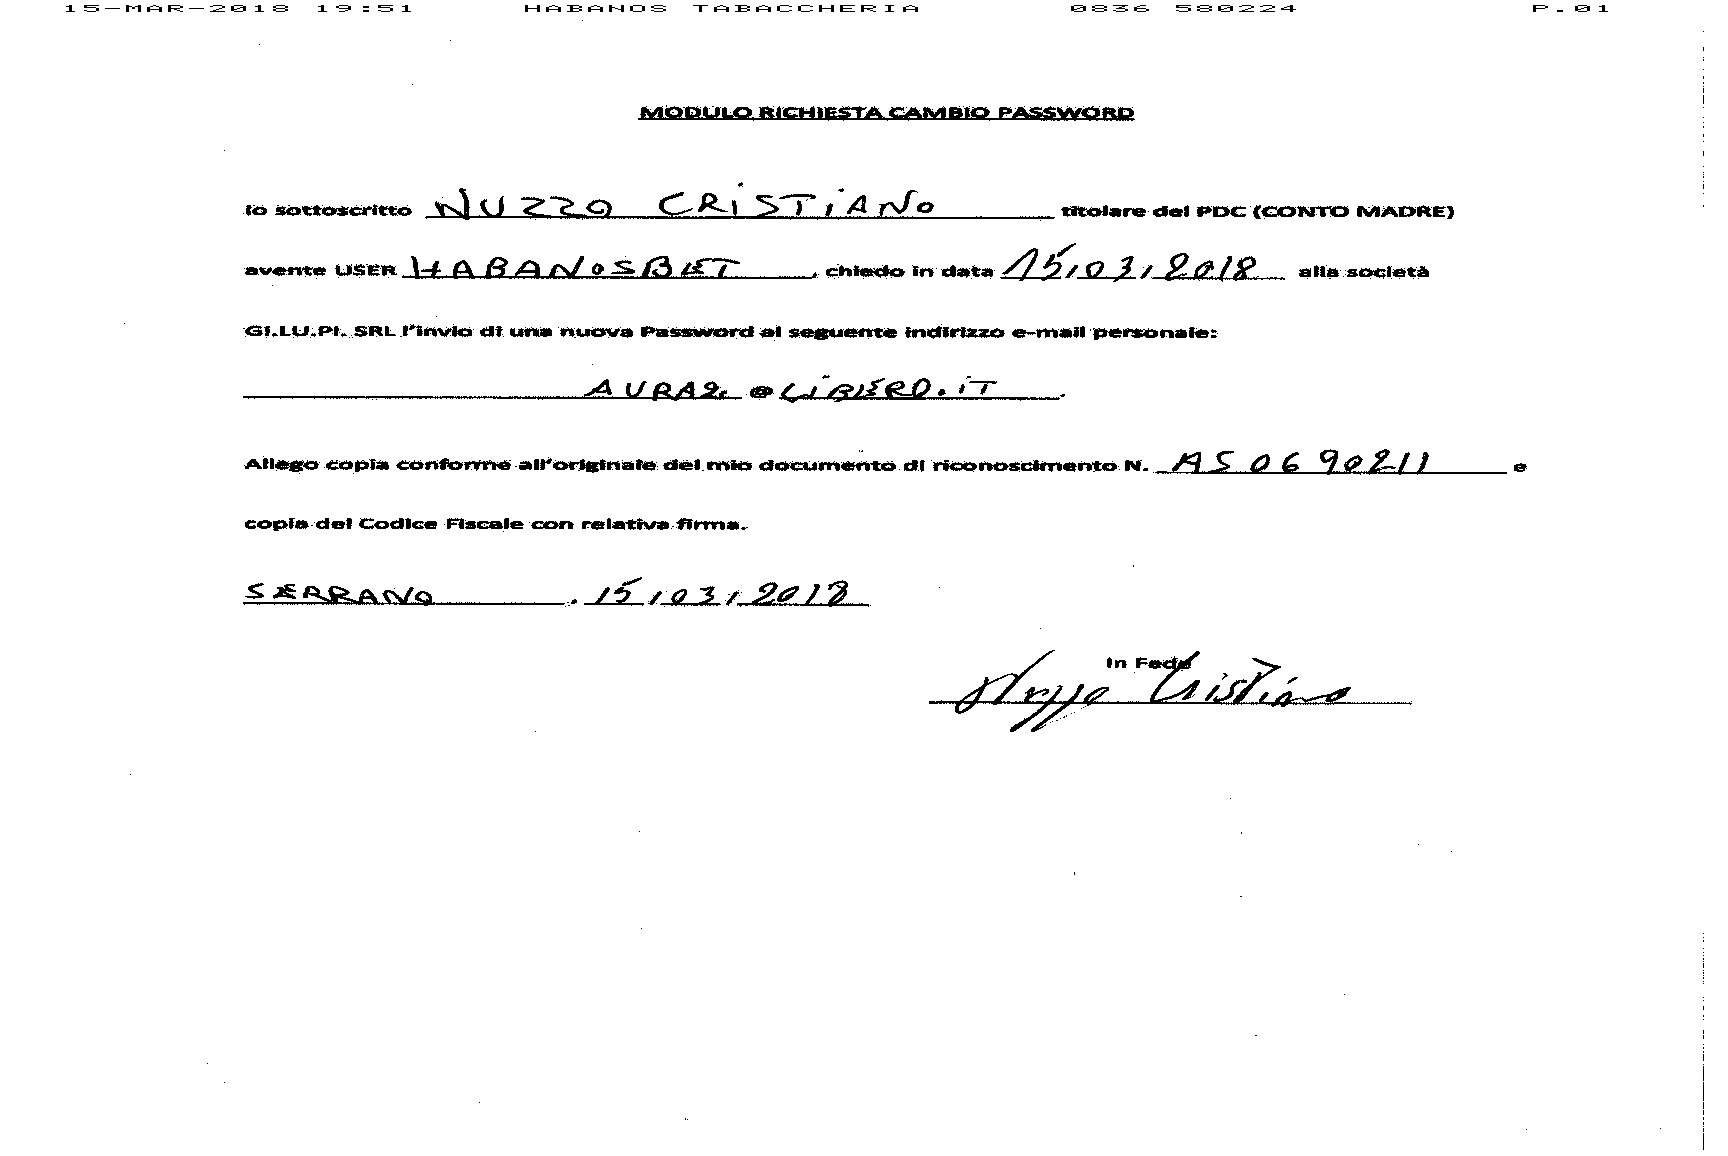 15-MAR-2018 19:51 HABANOS TABACCHERIA 0836 580224 P.01
MODULO RICHIESTA CAMBIO PASSWORD
Io sottoscritto NUZZO CRISTIANO titolare del PDC (CONTO MADRE)
avente USER HABANOSBET, chiedo in data 15/03/2018 alla società
GI.LU.PI. SRL l'invio di una nuova Password al seguente indirizzo e-mail personale:
AURA2.@LIBERO.IT.
Allego copia conforme all'originale del mio documento di riconoscimento N. AS0690211 e
copia del Codice Fiscale con relativa firma.
SERRANO, 15/03/2018
In Fede
Nuzzo Cristiano